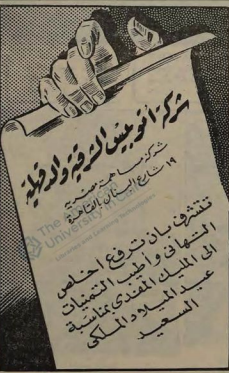 شركة أتوبيس الشرقية والدقهلية
شركة مساهمة مصرية
١٩ شارع البستان بالقاهرة
تتشرف بان ترفع أخلص
التهانى وأطيب التمنيات
الى المليك المفدى بمناسبة
عيد الميلاد الملكى
السعيد
The American
University in Cairo